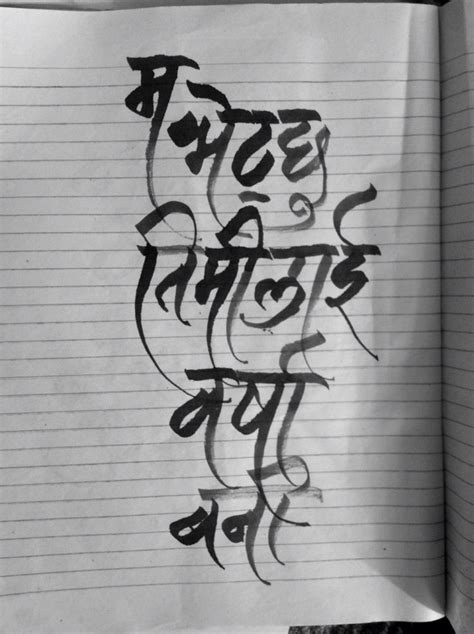 म
भेट्छु
तिमीलाई
वर्षा
बनी